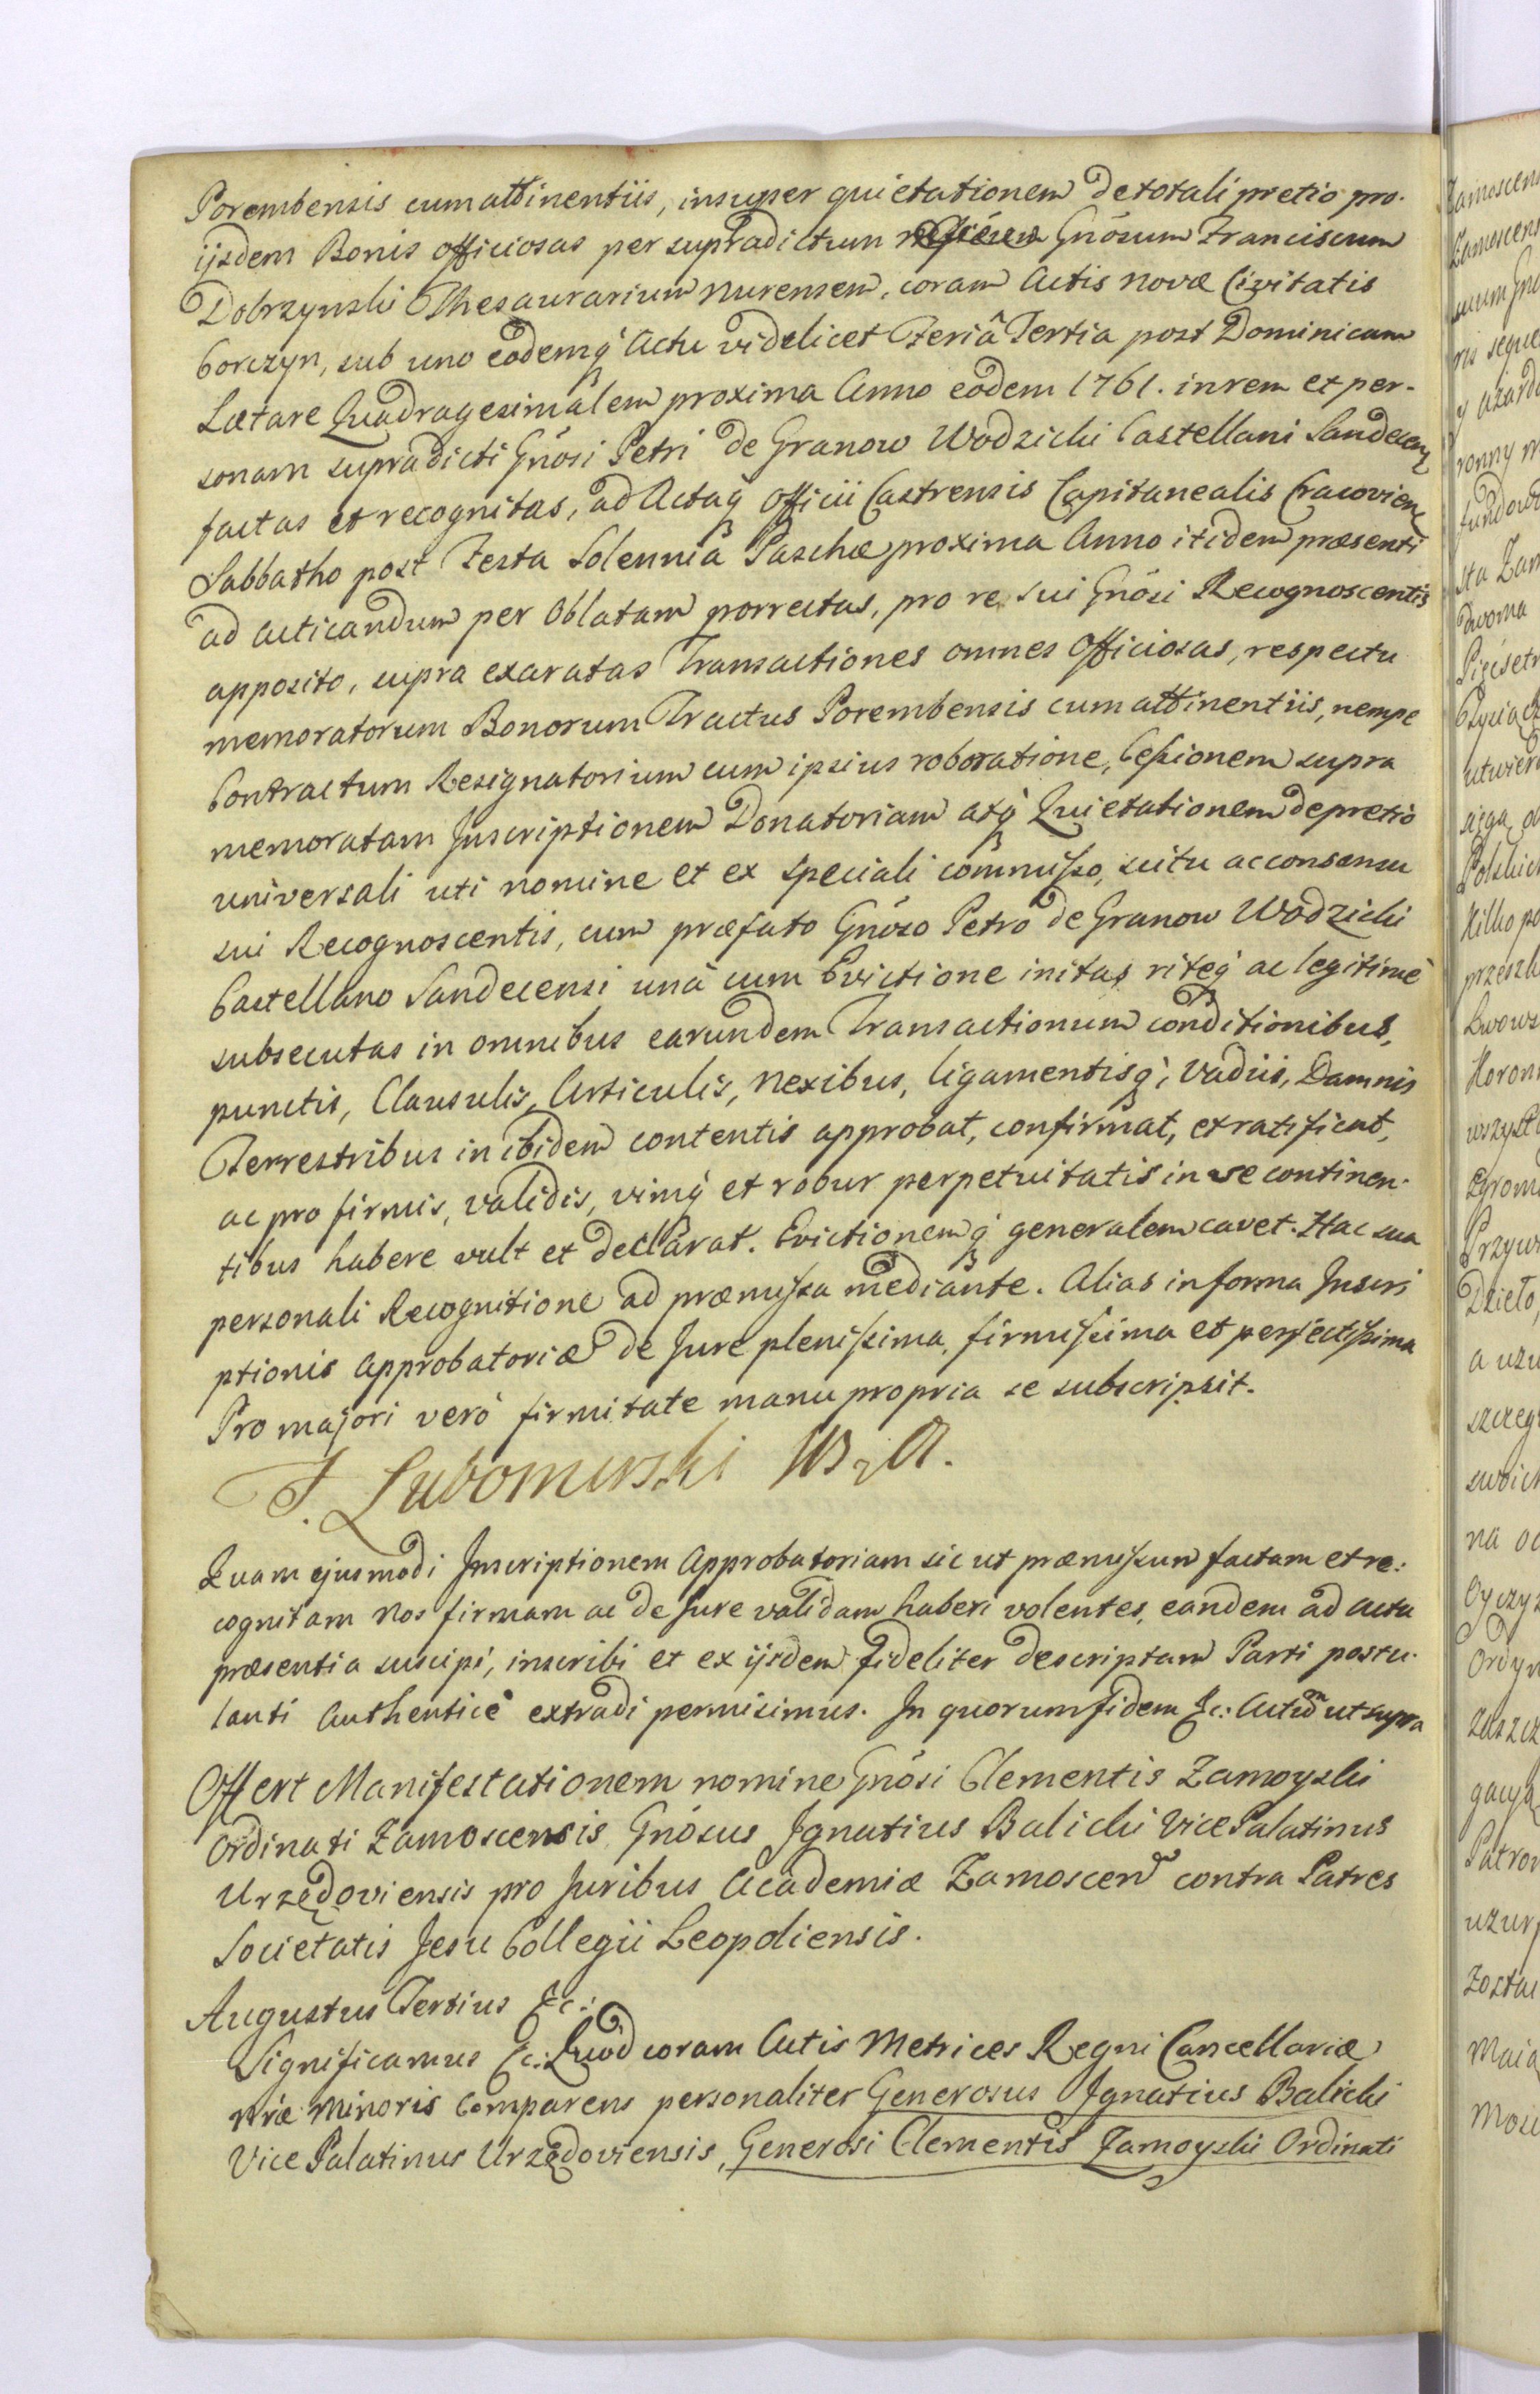 Porembensis cum attinentiis, insuper quietationem de totali pretio pro
ijsdem Bonis officiosas per supradictum Gnósum Franciscum
Dobrzynski Thesaurarium Nurensem, coram Actis Novæ Civitatis
Corczyn, sub uno eodemq́ Actu videlicet Feriâ Tertia post Dominicam
Lætare Quadragesimalem proxima Anno eodem 1761. in rem et per-
sonam supradicti Gnósi Petri de Granow Wodzicki Castellani Sandecen
factas et recognitas, ad Actaq́ Officii Castrensis Capitanealis Cracovien
Sabbatho post Festa Solennia Paschæ proxima Anno itidem præsenti
ad acticandum per Oblatam porrectas, pro re sui Gnósi Recognoscentis
apposito, supra exaratas Transactiones omnes Officiosas, respectu
memoratorum Bonorum Tractus Porembensis cum attinentiis, nempe
Contractum Resignatorium cum ipsius roboratione, Cessionem supra
memoratam Inscriptionem Donatoriam atq́ Quietationem de pretio
universali uti nomine et ex speciali commisso, scitu ac consensu
sui Recognoscentis, cum præfato Gnóso Petro de Granow Wodzicki
Castellano Sandecensi unà cum Evictione initas riteq́ ac legitimè
subsecutas in omnibus earundem Transactionum conditionibus,
punctis, Clausulis, Articulis, nexibus, ligamentisq́, Vadiis, Damnis
Terrestribus in ibidem contentis approbat, confirmat, et ratificat,
ac pro firmis, validis, vimq́ et robur perpetuitatis in se continen-
tibus habere vult et declarat. Evictionemq́ generalem cavet. Hac sua
personali Recognitione ad præmissa mediante. Alias in forma Inscri
ptionis approbatoriæ de Jure plenissima, firmissima et perfectissima
Pro majori verò firmitate manu propria se subscripsit.
Lubomirski
Quam ejusmodi Inscriptionem Approbatoriam sic ut præmissum factam et re:
cognitam Nos firmam ac de Jure validam haberi volentes, eandem ad acta
præsentia suscipi, inscribi et ex ijsdem fideliter descriptam Parti postu-
lanti Authenticè extradi permisimus. In quorum fidem &c: Actum ut supra
Offert Manifestationem nomine Gnósi Clementis Zamoyski
Ordinati Zamoscensis Gnósus Ignatius Balicki Vice Palatinus
Urzędoviensis pro Juribus Academiæ Zamoscen contra Patres
Societatis Jesu Collegii Leopoliensis.
Augustus Tertius &c:
Significamus &c: Quod coram Actis Metrices Regni Cancellariæ
Nræ Minoris Comparens personaliter Generosus Ignatius Balicki
Vice Palatinus Urzędoviensis, Generosi Clementis Zamoyski Ordinati